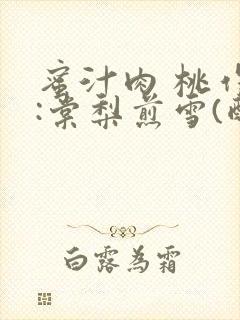 蜜汁肉桃作
:棠梨煎雪(
白露為霜